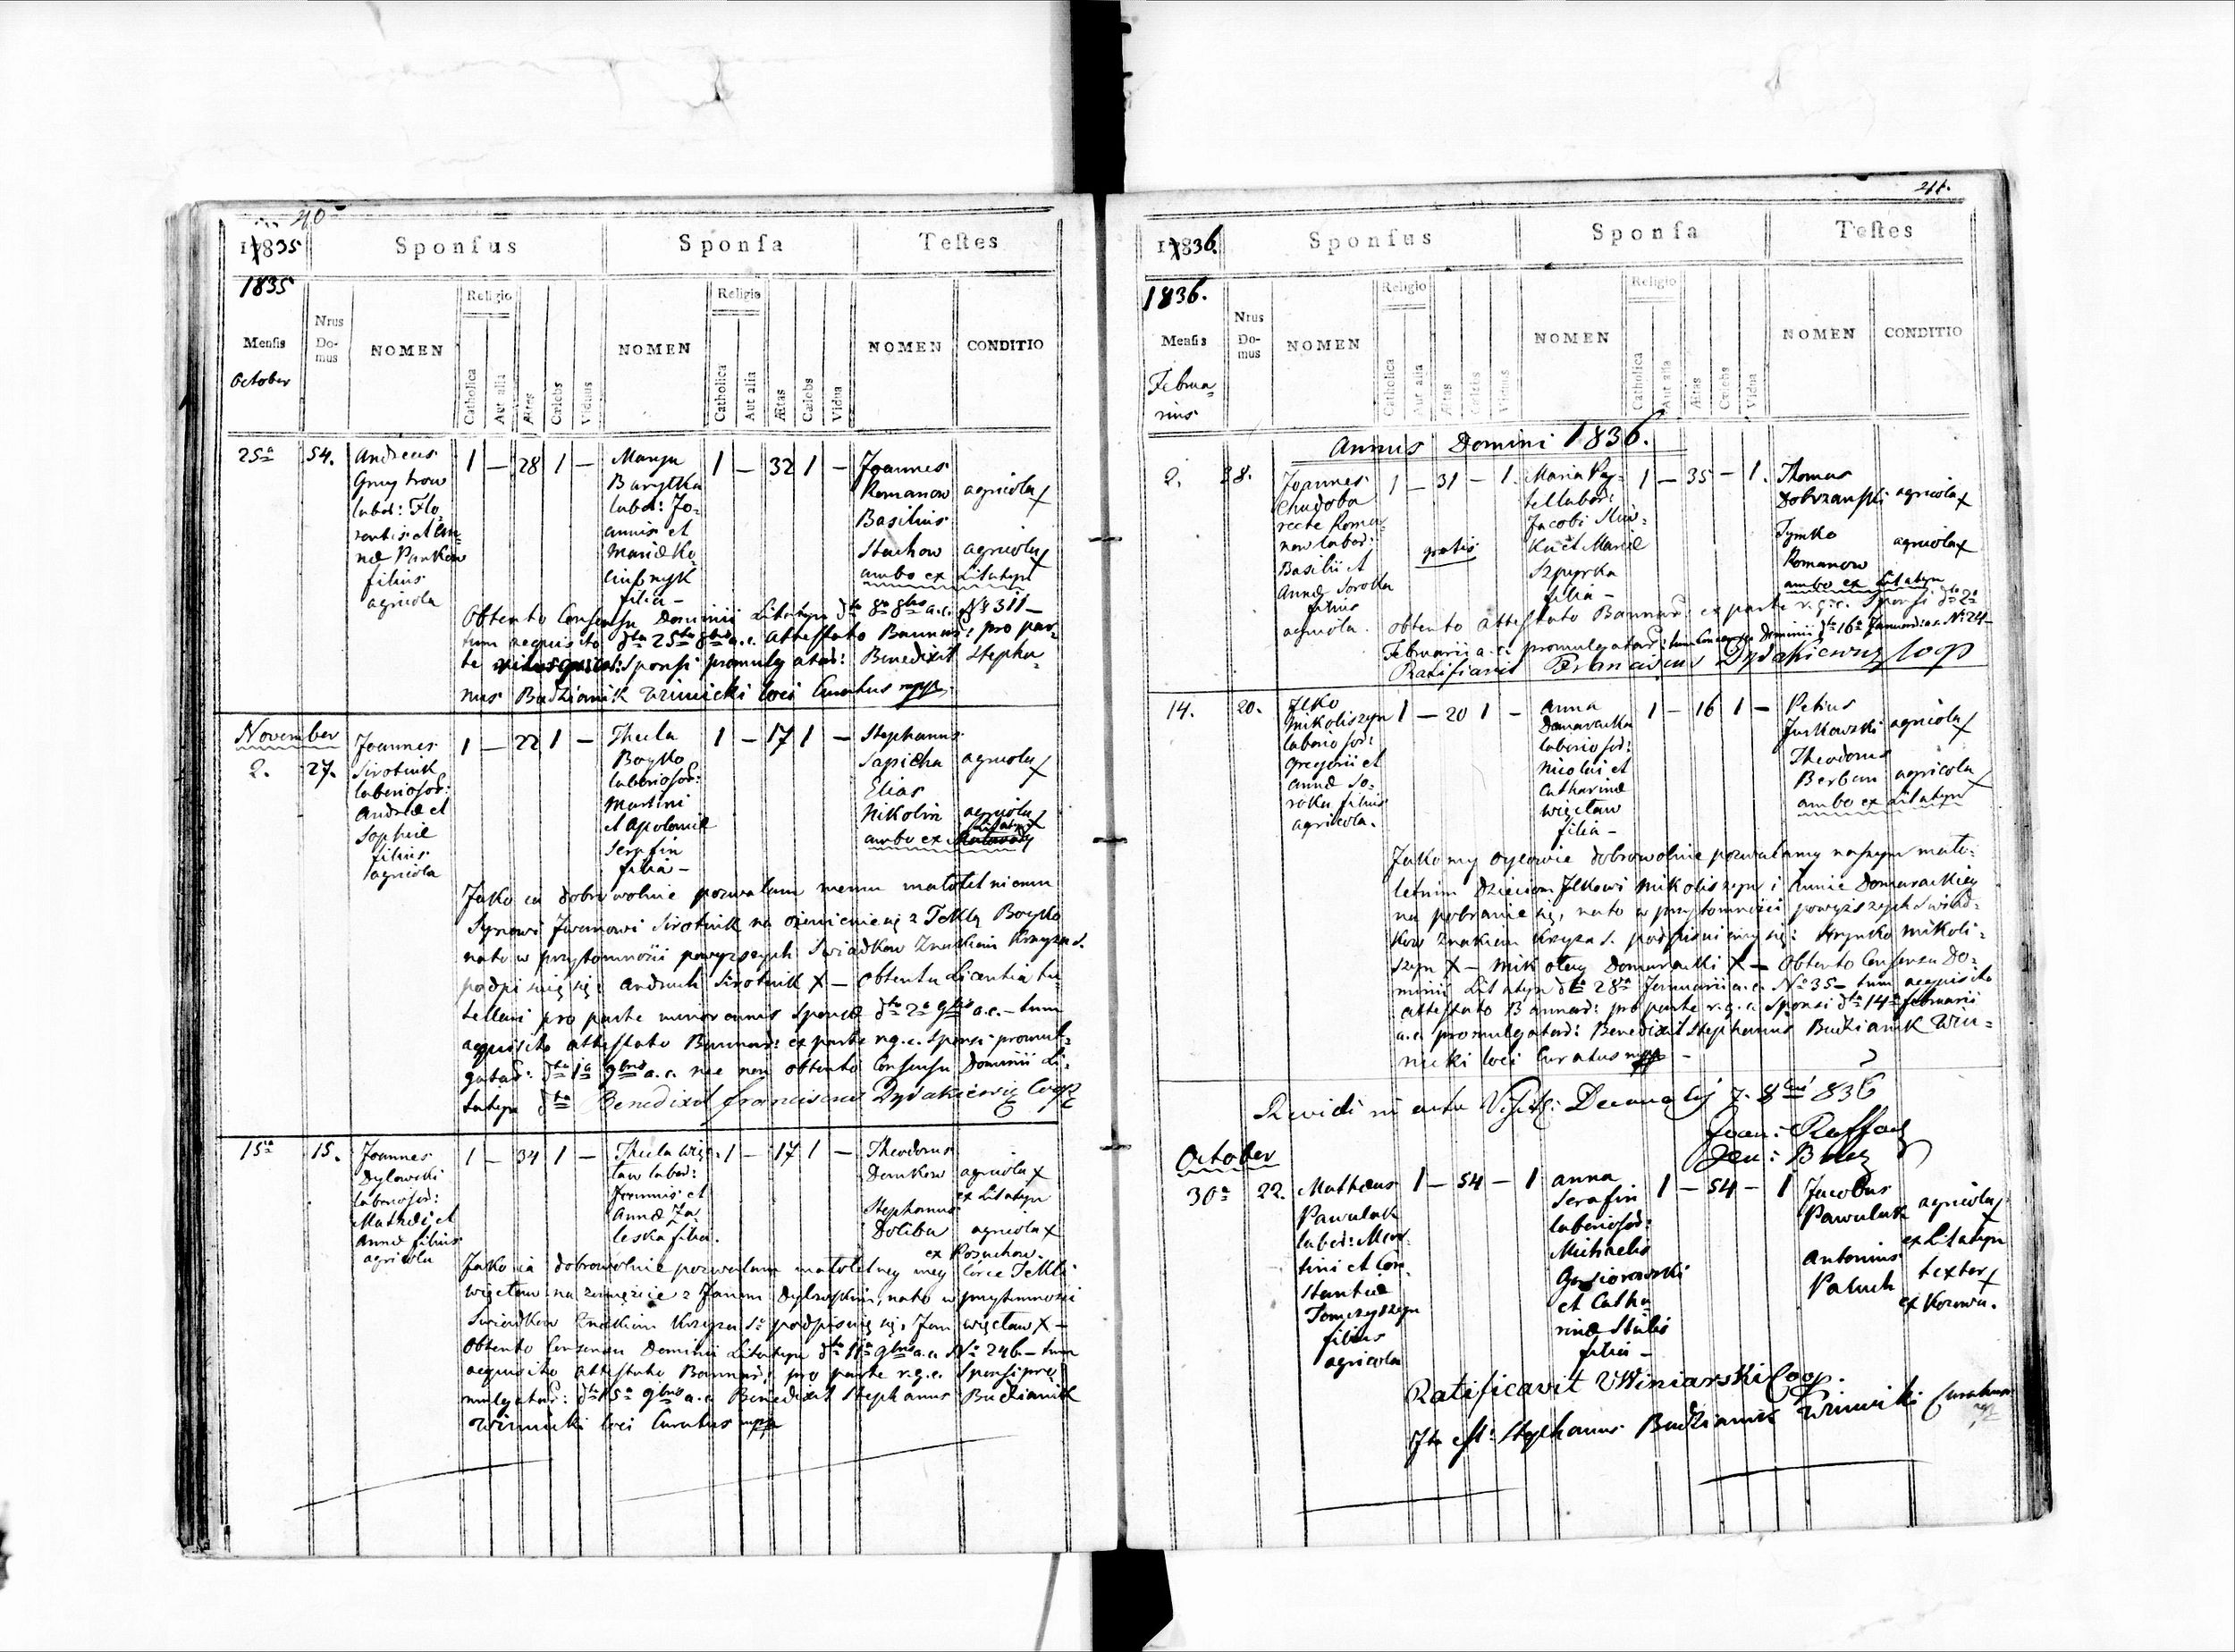 40
1835
Sponsus
Sponsa
Testes
1835
Mensis
October
Nrus Domus
NOMEN
Religio
Catholica
Aut alia
Ætas
Cælebs
Viduus
NOMEN
Religio
Catholica
Aut alia
Ætas
Cælebs
Vidua
NOMEN
CONDITIO
25ª 54.
Andreas
labor: Flo-
rentis et An-
næ Pankow
filius
agricola
1 — 28 1 —
Marya
Barytka
labor: Jo-
annis et
Mariæ Ko-
filia —
1 — 32 1 —
Joannes
Romanow agricola X
Basilius
Stachow agricola X
ambo ex Litatyn
Obtento Consensu Dominii Litatyn dto 8ª 8bris a.c. Nº 311 —
tum acquisito dto 25ta 8bris a.c. attestato Bannor: pro par-
te Sponsi promulgator: Benedixit Stepha-
nus Budzianik Winnicki loci Curatus mpp
November
2. 27.
Joannes
Sirotnik
laboriosor:
Andreæ et
Sophiæ
filius
agricola
1 — 22 1 —
Thecla
Boyko
laboriosor:
Martini
et Apoloniæ
Serafin
filia —
1 — 17 1 —
Stephanus
Sapicha agricola X
Elias
Nikolin agricola X
ambo ex Litatyn
Jako ia dobrowolnie pozwalam memu małoletniemu
Synowi Iwanowi Sirotnik na ożenienie się z Teklą Boyko
na to w przytomności powyższych Swiadkow Znakiem Krzyża S.
podpisuię się: Andruch Sirotnik X — Obtenta Licentia tu-
tellari pro parte minorennis Sponsæ dto 2ª 9bris a.c. — tum
acquisito attestato Bannor: ex parte r.g.c. Sponsi promul-
gator: dto 1ª 9bris a.c. nec non obtento Consensu Dominii Li-
tatyn dto Benedixit Franciscus Dydakiewicz Coop
15ª 15.
Joannes
Dylowski
laboriosor:
Mathæi et
Annæ filius
agricola
1 — 34 1 —
Thecla Wię-
cław labor:
Joannis et
Annæ Za-
leska filia.
1 — 17 1 —
Theodorus
Demkow agricola X
ex Litatyn
Stephanus
Doliba agricola X
ex Posuchow.
Jako ia dobrowolnie pozwalam małoletney mey Córce Tekli
Więcław na zamęzcie z Janem Dylowskim, na to w przytomności
Swiadkow Znakiem Krzyża Sº podpisuię się. Jan Więcław X —
Obtento Consensu Dominii Litatyn dto 11ª 9bris a.c. Nº 246 — tum
acquisito attestato Bannor: pro parte r.g.c. Sponsi pro-
mulgator: dto 15ª 9bris a.c. Benedixit Stephanus Budzianik
Winnicki loci Curatus mpp
41.
1836.
Sponsus
Sponsa
Testes
1836.
Mensis
Februa-
rius
Nrus Domus
NOMEN
Religio
Catholica
Aut alia
Ætas
Cælebs
Viduus
NOMEN
Religio
Catholica
Aut alia
Ætas
Cælebs
Vidua
NOMEN
CONDITIO
Annus Domini 1836.
2. 38.
Joannes
Chudoba
recte Roma-
now labor:
Basilii et
Annæ Soroka
filius
agricola.
1 — 31 — 1.
gratis
Maria Pay-
tel labor:
Jacobi
et Mariæ
Szpyrka
filia —
1 — 35 — 1.
Thomas
Dobrzański agricola X
Tymko
Romanow agricola X
ambo ex Litatyn
Obtento attestato Bannor: ex parte r.g.c. Sponsi dto 2ª
Februarii a.c. promulgator: tum Consensu Dominii dto 16ª Januarii a.c. Nº 24 —
Ratificavit Franciscus Dydakiewicz Coop
14. 20.
Ilko
Mikoliszyn
laboriosor:
Gregorii et
Annæ So-
roka filius
agricola.
1 — 20 1 —
Anna
Domaracka
laboriosor:
Nicolai et
Catharinæ
Więcław
filia —
1 — 16 1 —
Petrus
Jurkowski agricola X
Theodorus
Berban agricola X
ambo ex Litatyn
Jako my oycowie dobrowolnie pozwalamy naszym mało-
letnim Dzieciom Ilkowi Mikoliszyn i Annie Domarackiey
na pobranie się, na to w przytomności powyższych Swiad-
kow Znakiem Krzyża S. podpisuiemy się: Hrynko Mikoli-
szyn X — Mikołay Domaracki X — Obtento Consensu Do-
minii Litatyn dto 28ª Januarii a.c. Nº 35 — tum acquisito
attestato Bannor: pro parte r.g.c. Sponsi dto 14ª Februarii
a.c. promulgator: Benedixit Stephanus Budzianik Win-
nicki loci Curatus mpp —
Revidi in actu Visit: Decanalis 7. 8bris 836
October
30ª 22.
Matheus
Pawulak
labor: Mar-
tini et Con-
stantiæ
Tomczyszyn
filius
agricola
1 — 54 — 1
Anna
Serafin
laboriosor:
Michaelis
Gąsiorowski
et Catha-
rinæ
filia —
1 — 54 — 1
Jacobus
Pawulak agricola X
ex Litatyn
Antonius
Paluch textor X
ex Kozowa.
Ratificavit Winiarski Coop.
Ita est: Stephanus Budzianik Winnicki Curatus